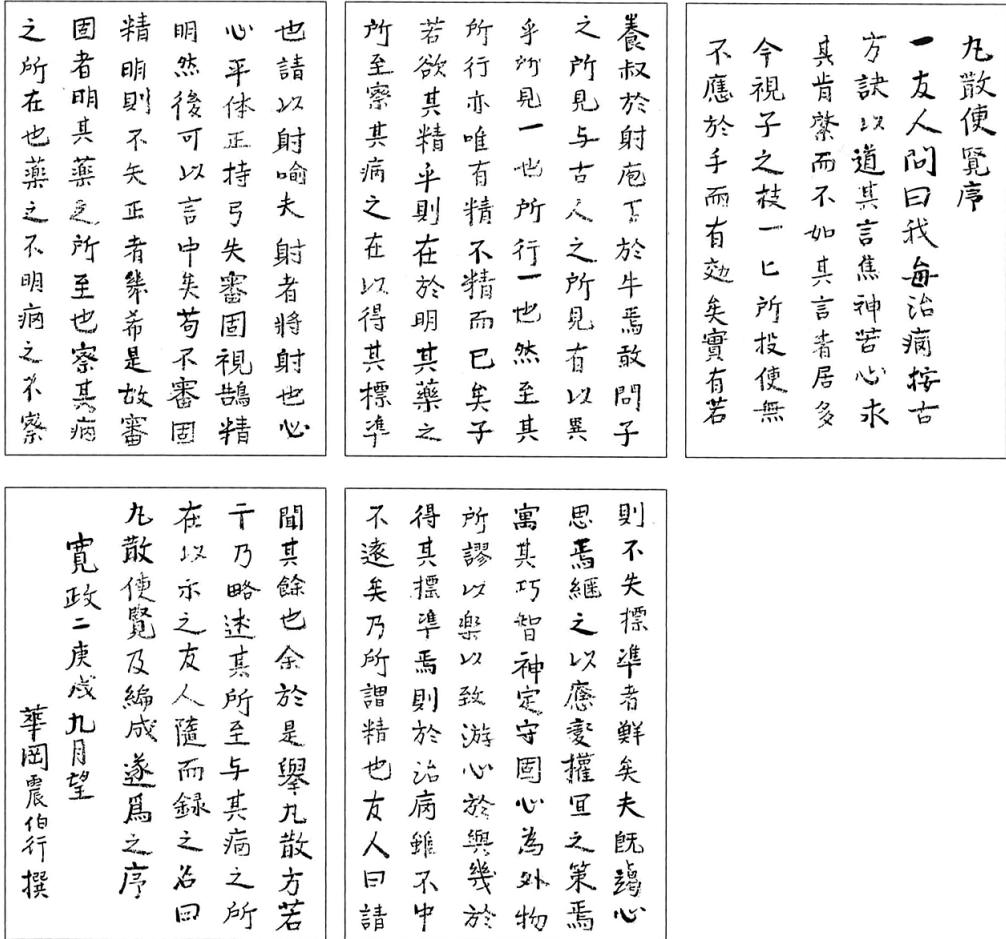 丸散便覧序
一友人問曰我毎治病按古
方訣以道其言焦神苦心求
其肯綮而不如其言者居多
今視子之枝一匕所投使無
不應於手而有効矣實有若
養叔於射庖丁於牛焉敢問子
之所見与古人之所見有以異
乎所見一也所行一也然至其
所行亦唯有精不精而已矣子
若欲其精乎則在於明其薬之
所至察其病之在以得其標準
也請以射喻夫射者將射也必
心平体正持弓矢審固視鵠精
明然後可以言中矣苟不審固
精明則不矢正者幾希是故審
固者明其薬之所至也察其病
之所在也薬之不明病之不察
則不失標準者鮮矣夫既竭心
思焉継之以應変權宜之策焉
寓其巧智神定守固心為外物
所謬以楽以致游心於與幾於
得其標準焉則於治病雖不中
不遠矣乃所謂精也友人曰請
聞其餘也余於是舉丸散方若
干乃略述其所至与其病之所
在以示之友人隨而録之名曰
丸散便覧及編成遂爲之序
寛政二庚戌九月望
華岡震伯行撰